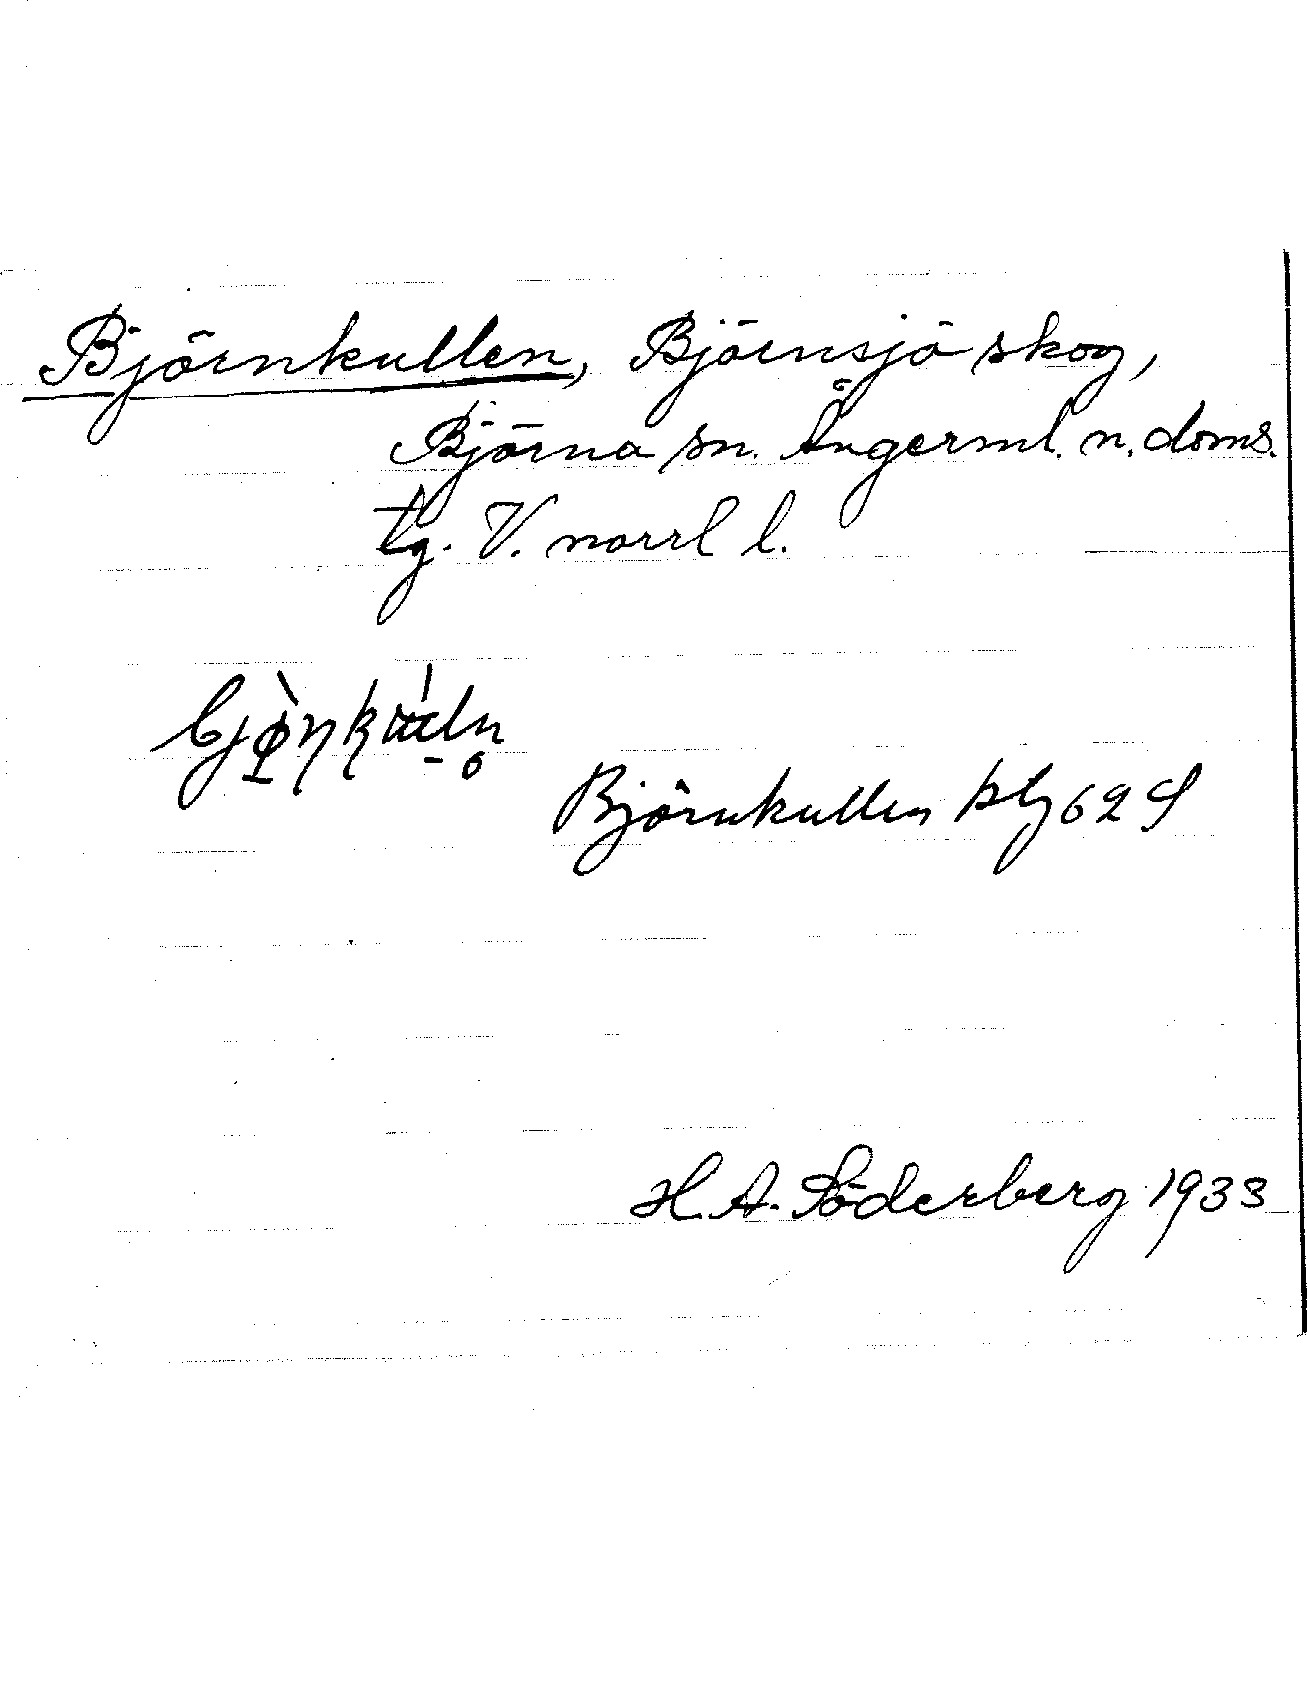 Björnkullen, Björnsjö skog,
Björna sn. Ångerml. n. doms.
tg. V. norrl l.
Björnkullen kbl 62 S
H. A. Söderberg 1933